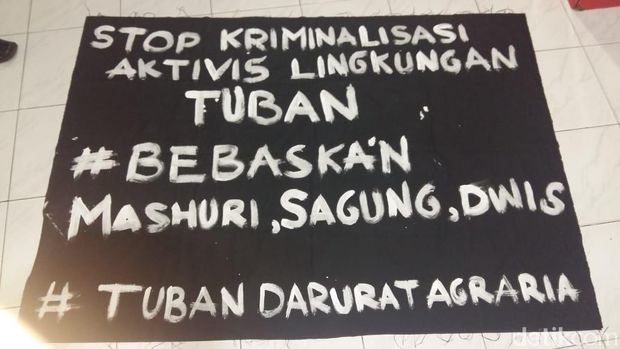 STOP KRIMINALISASI
AKTIVIS LINGKUNGAN
TUBAN
# BEBASKAN
MASHURI, SAGUNG, DWIS
# TUBAN DARURAT AGRARIA
detikcom